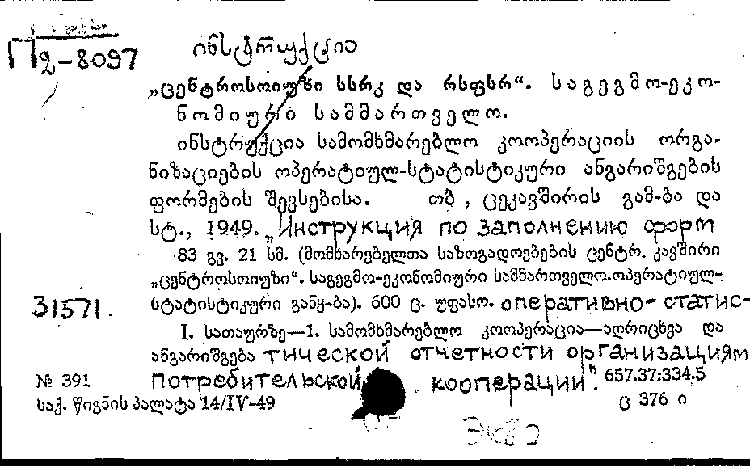 Пგ-8097
ინსტრუქცია
„ცენტროსოიუზი სსრკ და რსფსრ“. საგეგმო-ეკო-
ნომიური სამმართველო.
ინსტრუქცია სამომხმარებლო კოოპერაციის ორგა-
ნიზაციების ოპერატიულ-სტატისტიკური ანგარიშგების
ფორმების შევსებისა. თბ, ცეკავშირის გამ-ბა და
სტ., 1949. „Инструкция по заполнению форм
83 გვ. 21 სმ. (მომხარებელთა საზოგადოებების ცენტრ. კავშირი
„ცენტროსოიუზი“. საგეგმო-ეკონომიური სამმართველო.ოპერატიულ-
31571. სტატისტიკური განყ-ბა). 600 ც. უფასო. оперативно-статис-
I. სათაურზე—1. სამომხმარებლო კოოპერაცია—აღრიცხვა და
ანგარიშგება тической отчетности организациям
№ 391 потребительской кооперации". 657.37:334.5
საქ. წიგნის პალატა 14/IV-49 ც 376 ი